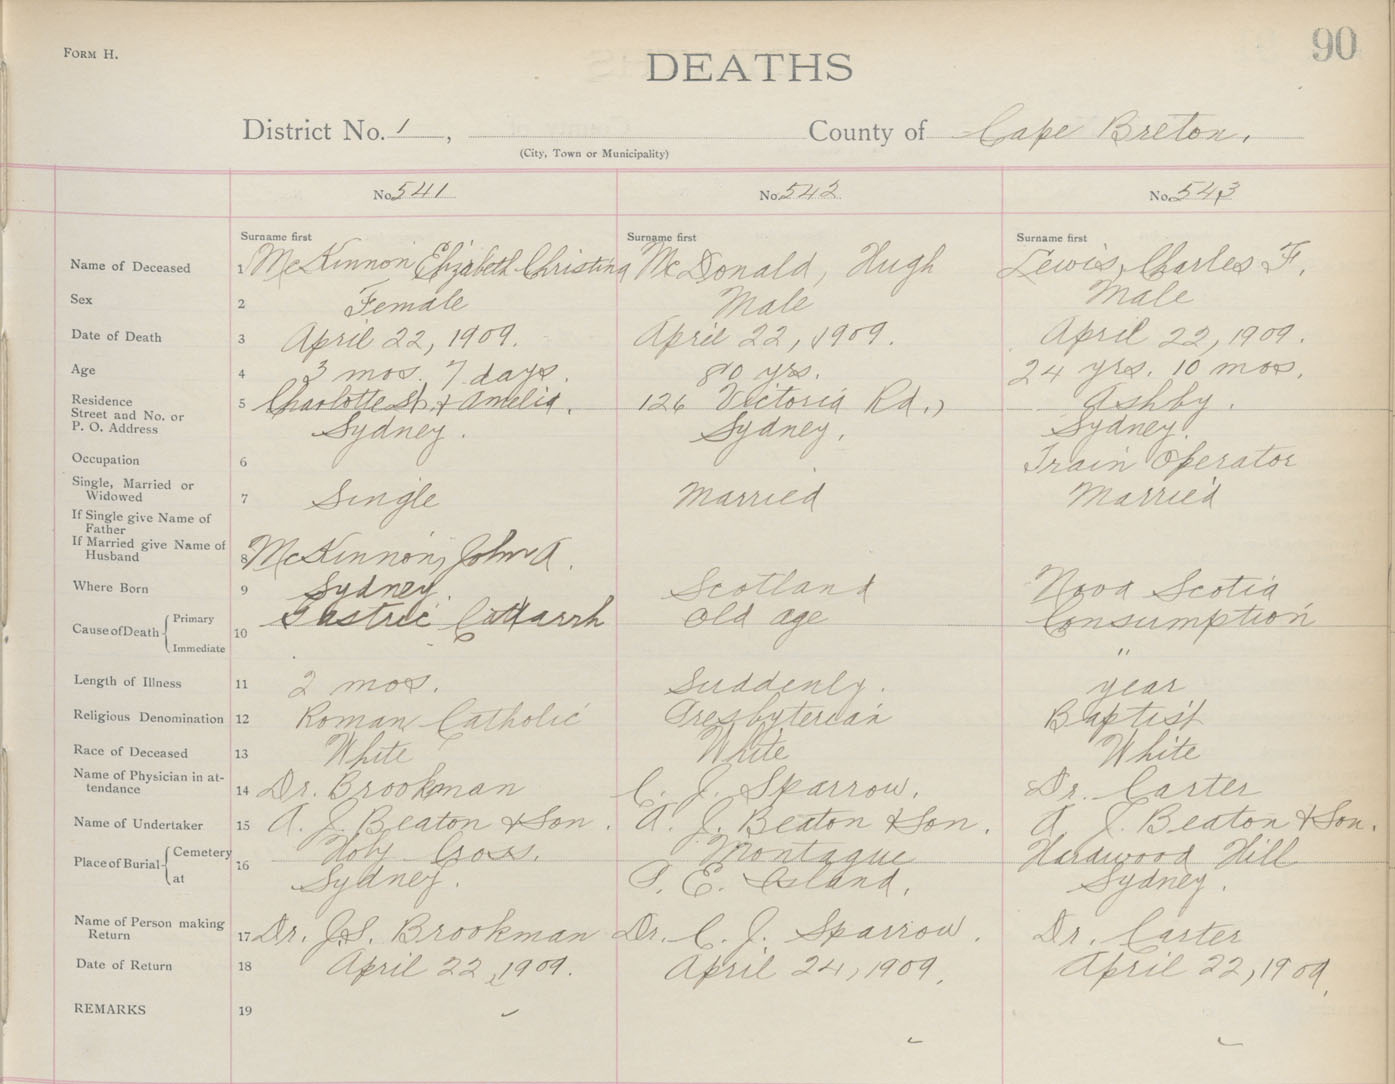 FORM H.
90
DEATHS
District No. 1, County of Cape Breton.
(City, Town or Municipality)
No. 541 No. 542 No. 543
Surname first Surname first Surname first
Name of Deceased 1 McKinnon Elizabeth Christina McDonald, Hugh Lewis, Charles F.
Sex 2 Female Male Male
Date of Death 3 April 22, 1909. April 22, 1909. April 22, 1909.
Age 4 3 mos. 7 days. 80 yrs. 24 yrs. 10 mos.
Residence Street and No. or P. O. Address 5 Charlotte St. & Amelia. 126 Victoria Rd., Ashby.
Sydney. Sydney. Sydney.
Occupation 6 Train Operator
Single, Married or Widowed 7 Single Married Married
If Single give Name of Father
If Married give Name of Husband 8 McKinnon, John A.
Where Born 9 Sydney. Scotland Nova Scotia
Cause of Death Primary 10 Gastric Catarrh Old age Consumption
Immediate "
Length of Illness 11 2 mos. Suddenly. year
Religious Denomination 12 Roman Catholic Presbyterian Baptist
Race of Deceased 13 White White White
Name of Physician in attendance 14 Dr. Brookman C. J. Sparrow. Dr. Carter
Name of Undertaker 15 A. J. Beaton & Son. A. J. Beaton & Son. A J. Beaton & Son.
Place of Burial Cemetery 16 Holy Cross. Montague Hardwood Hill
at Sydney. P. E. Island. Sydney.
Name of Person making Return 17 Dr. J.S. Brookman Dr. C. J. Sparrow. Dr. Carter
Date of Return 18 April 22, 1909. April 24, 1909. April 22, 1909.
REMARKS 19